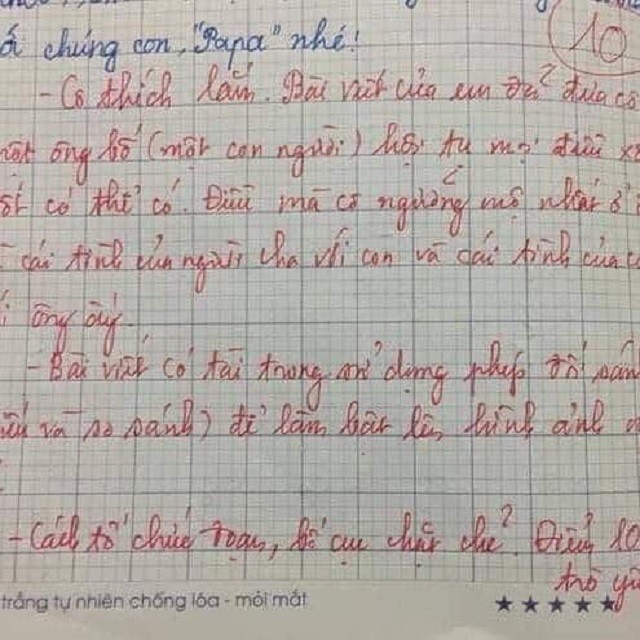 chúng con, "Papa" nhé!
10
- Cô thích lắm. Bài viết của em đã đưa cô
một ông bố (một con người) hội tụ mọi điều
có thể có. Điều mà cô ngưỡng mộ nhất ở
cái tình của người cha với con và cái tình của
ông ấy.
- Bài viết có tài trong sử dụng phép
và so sánh) để làm bật lên hình ảnh
- Cách tổ chức đoạn, bố cục chặt chẽ. Điểm 10
trắng tự nhiên chống lóa - mỏi mắt
★ ★ ★ ★ ★